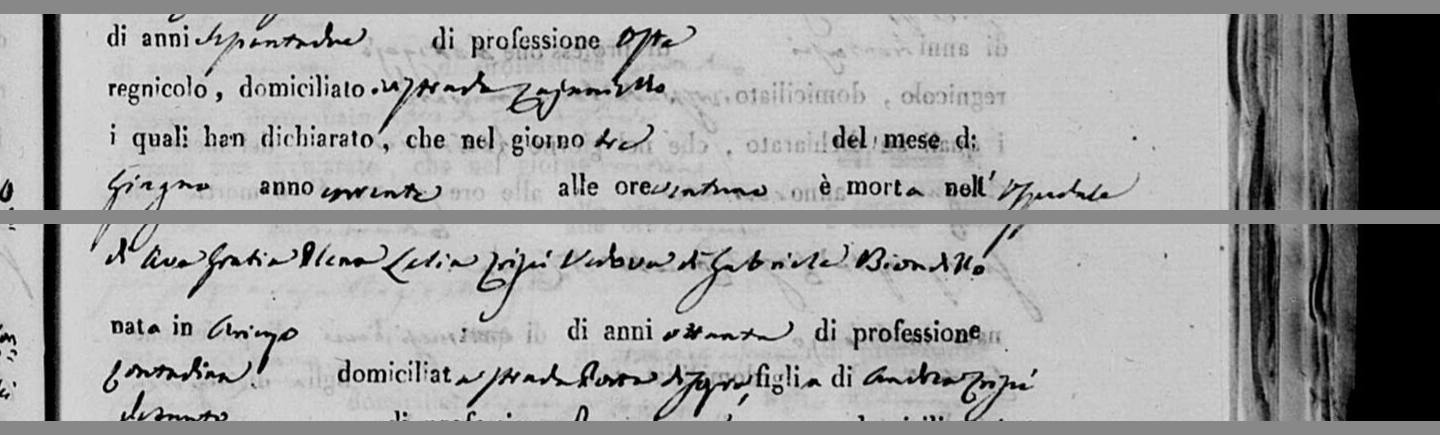 di anni Sepantadue di professione Oste
regnicolo, domiciliato in strada
i quali han dichiarato, che nel giorno tre del mese di
Giugno anno corrente alle ore ventuno è morta nell' Ospedale
di Ave Gratia Plena Lelia Vedova di Gabriele Biondillo
nata in di anni ottanta di professione
Contadina domiciliata strada Porta figlia di Andrea
defunto